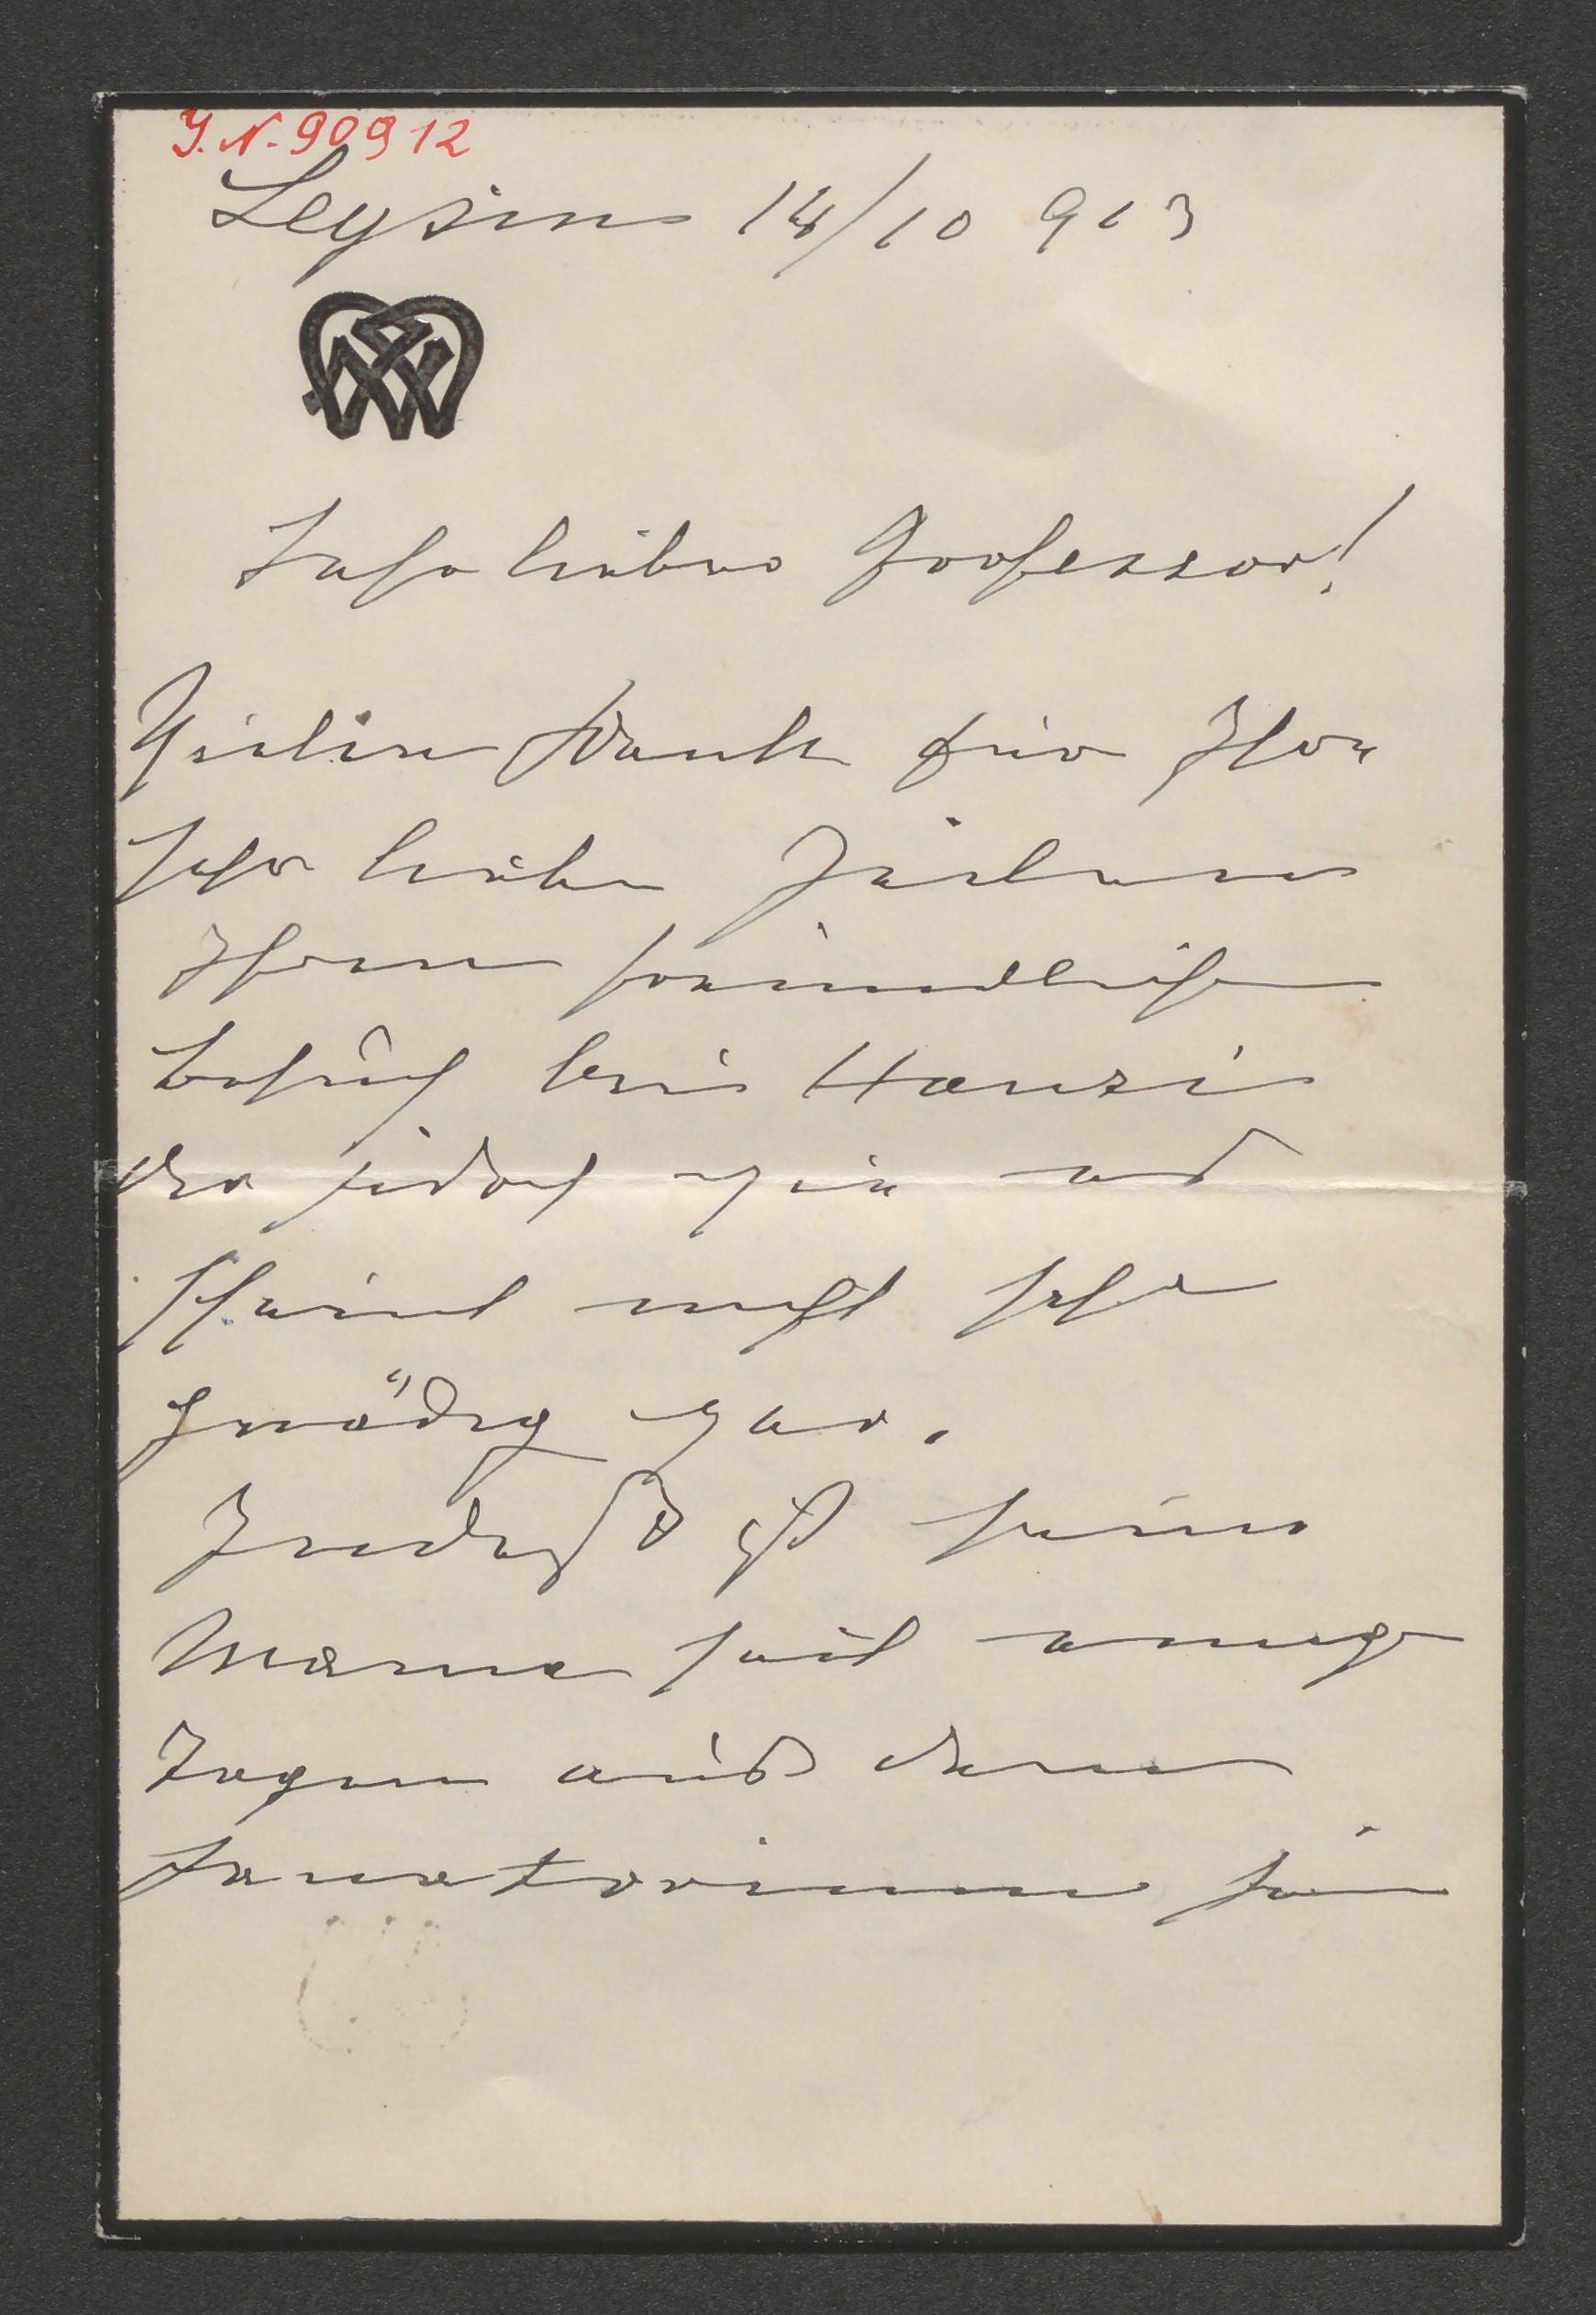 I.N. 90912
Leysin 14/10 913
Sehr lieber Professor!
Vielen Dank für Ihre
sehr lieben Zeilen
Ihren freundlichen
Besuch bei Hansi
der jedoch wie es
scheint nicht sehr
gnädig war.
Indeß ist seine
Mama seit einige
Tagen aus dem
Sanatorium